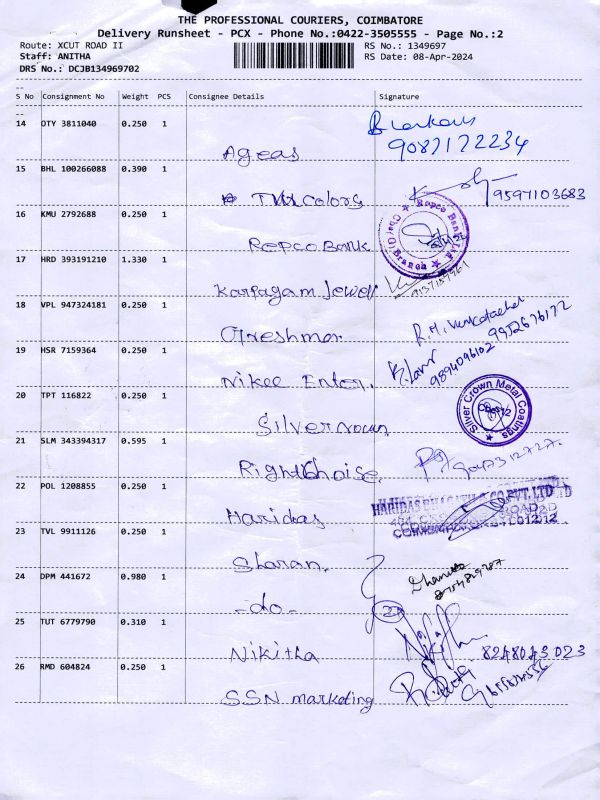 THE PROFESSIONAL COURIERS, COIMBATORE
Delivery Runsheet - PCX - Phone No.:0422-3505555 - Page No.:2
Route: XCUT ROAD II RS No.: 1349697
Staff: ANITHA RS Date: 08-Apr-2024
DRS No.: DCJB134969702
--
S No Consignment No Weight PCS Consignee Details Signature
--
14 OTY 3811040 0.250 1
9087172234
Ageas
15 BHL 100266088 0.390 1
9597103683
TVH colors
16 KMU 2792688 0.250 1
Repco Bank
Repco Bank
Branch
17 HRD 393191210 1.330 1
Karpagam Jewel
18 VPL 947324181 0.250 1
R.M. Venkatachal
9952676172
Greshmar
19 HSR 7159364 0.250 1
9894096102
Nikee Enter.
20 TPT 116822 0.250 1
Silver Crown Metal Coatings
Silver
21 SLM 343394317 0.595 1
Right Choise
22 POL 1208855 0.250 1
HARIDAS CO PVT. LTD
Haridas
23 TVL 9911126 0.250 1
Sharan.
24 DPM 441672 0.980 1
-do-
25 TUT 6779790 0.310 1
Nikitha
26 RMD 604824 0.250 1
SSN marketing